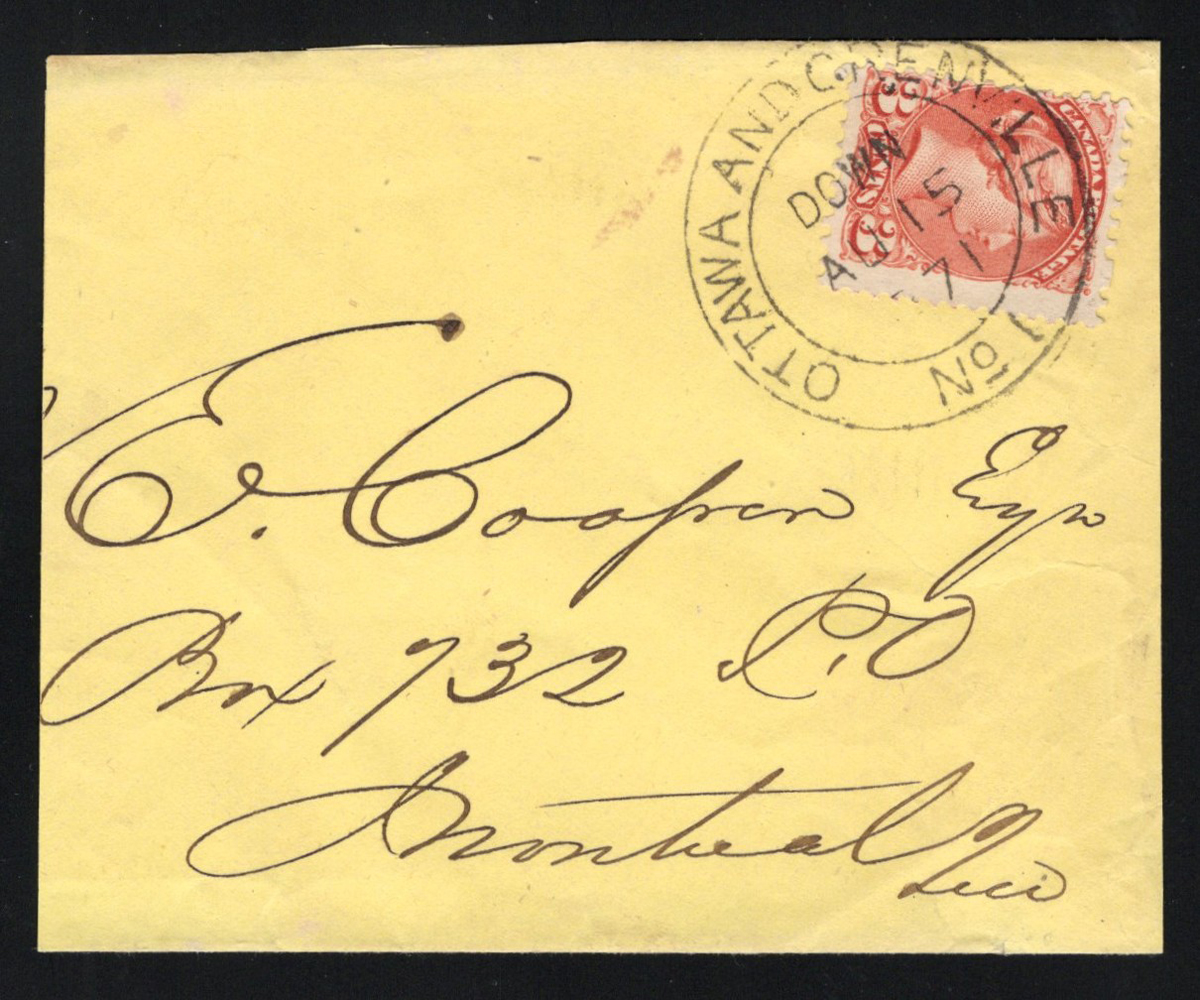 OTTAWA AND GRENVILLE
No 1
DOWN
AU 15
71
3 CENTS 3
CANADA POSTAGE
E. Cooper Esqr
Box 732 P.O
Montreal